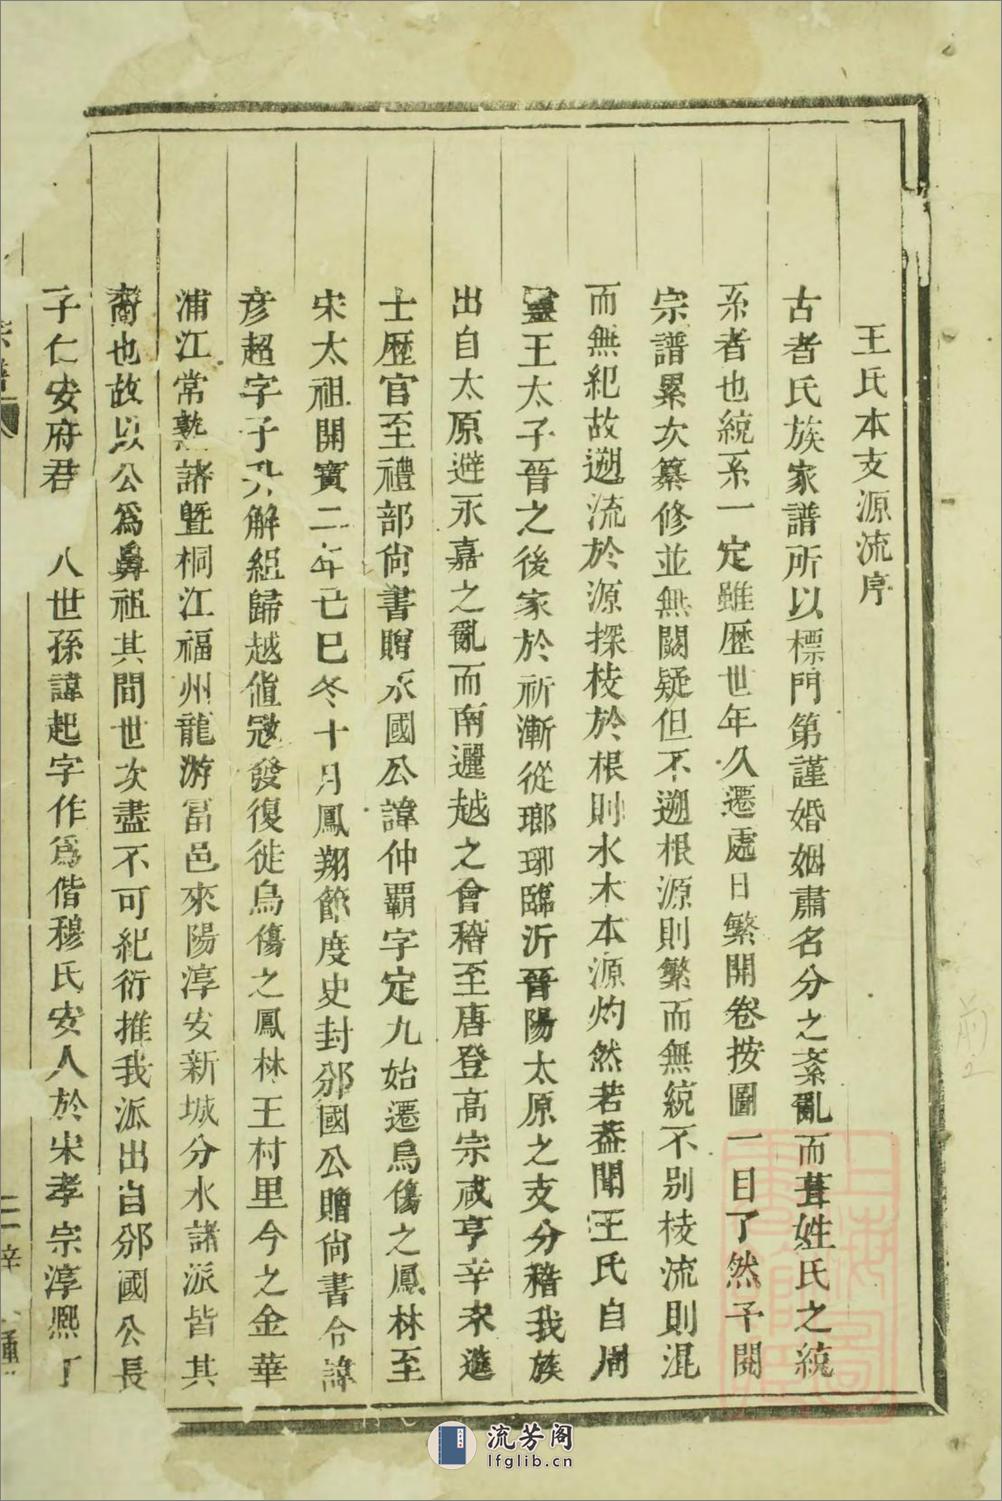 王氏本支源流序
古者氏族家譜所以標門第謹婚姻肅名分之紊亂而葺姓氏之統
系者也統系一定雖歷世年久遷處日繁開卷按圖一目了然予閱
宗譜累次纂修並無闕疑但不遡根源則繁而無統不别棱流則混
而無紀故遡流於源探枝於根則水木本源灼然若葢聞王氏自周
靈王太子晉之後家於祈漸從瑯琊臨沂晉陽太原之支分稽我族
出自太原避永嘉之亂而南邐越之會稽至唐登高宗咸亨辛未進
士歷官至禮部尙書贈永國公諱仲覇字定九始遷烏傷之鳳林至
宋太祖開寳二年己巳冬十月鳳翔節度史封邠國公贈尙書令諱
彥超字子升解組歸越値寇發復徙烏傷之鳳林王村里今之金華
浦江常熟諸暨桐江福州龍游富邑來陽淳安新城分水諸派皆其
裔也故以公爲鼻祖其間世次盡不可紀衍推我派出自邠國公長
子仁安府君 八世孫諱起字作爲偕穆氏安人於宋孝宗淳熈丁
宗譜
流芳阁
lfglib.cn